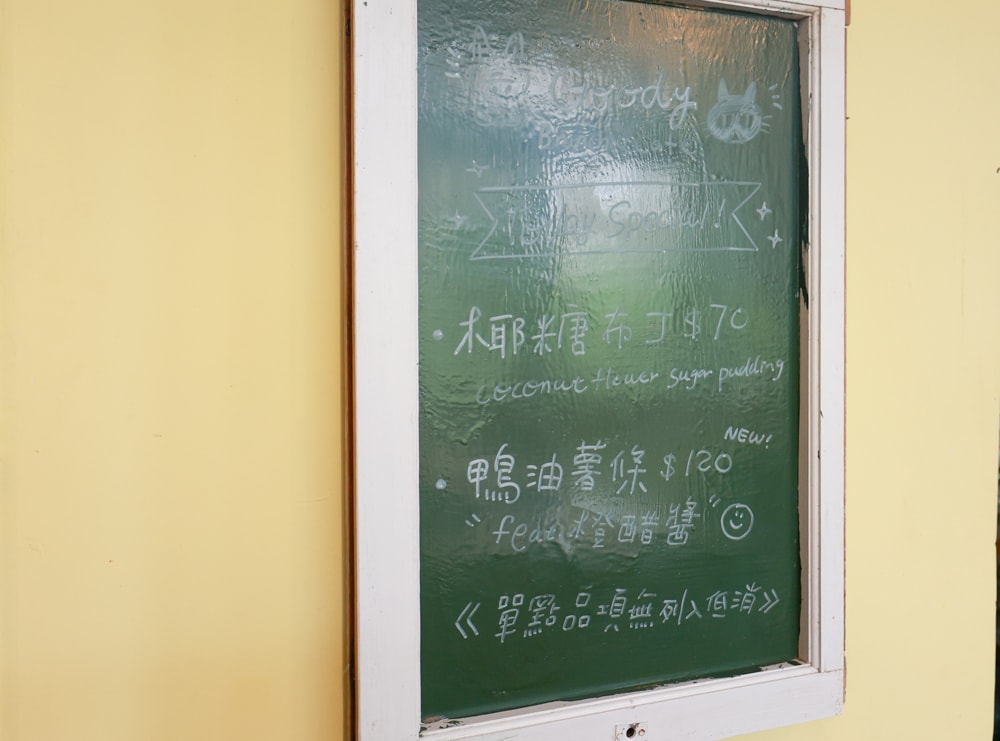 Goody
Special!
椰糖布丁 $70
coconut flower sugar pudding
NEW!
鴨油薯條 $120
"feat. 橙醋醬"
《單點品項無列入低消》